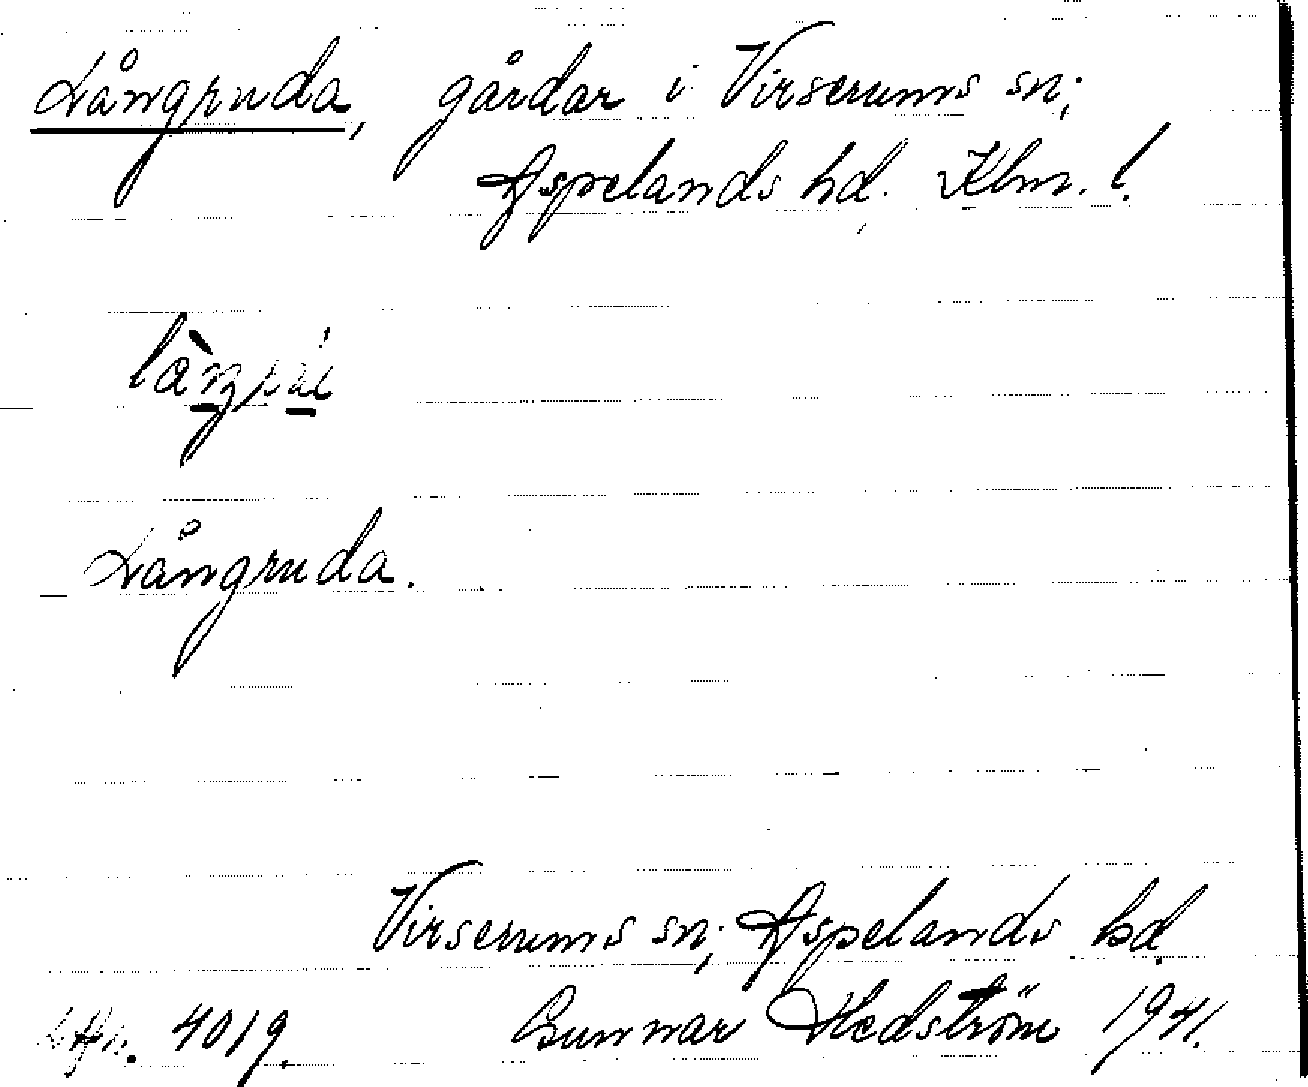 Långruda, gårdar i Virserums sn;
Aspelands hd. Klm. l.
Långruda.
Virserums sn; Aspelands hd.
4019. Gunnar Hedström 1941.